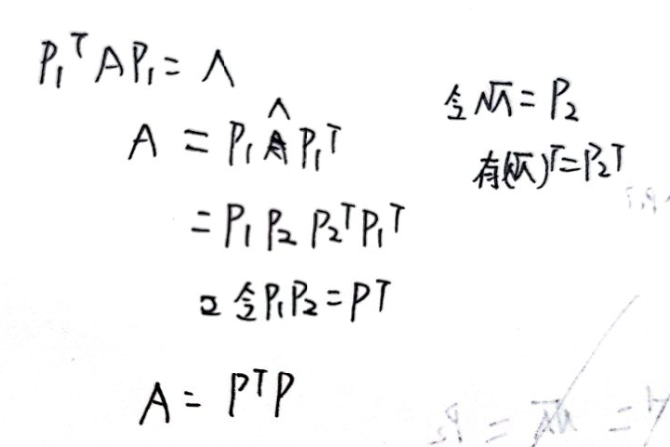 P₁ᵀAP₁ = Λ
A = P₁ΛP₁ᵀ
= P₁P₂P₂ᵀP₁ᵀ
令P₁P₂ = Pᵀ
A = PᵀP
令√Λ = P₂
有(√Λ)ᵀ = P₂ᵀ